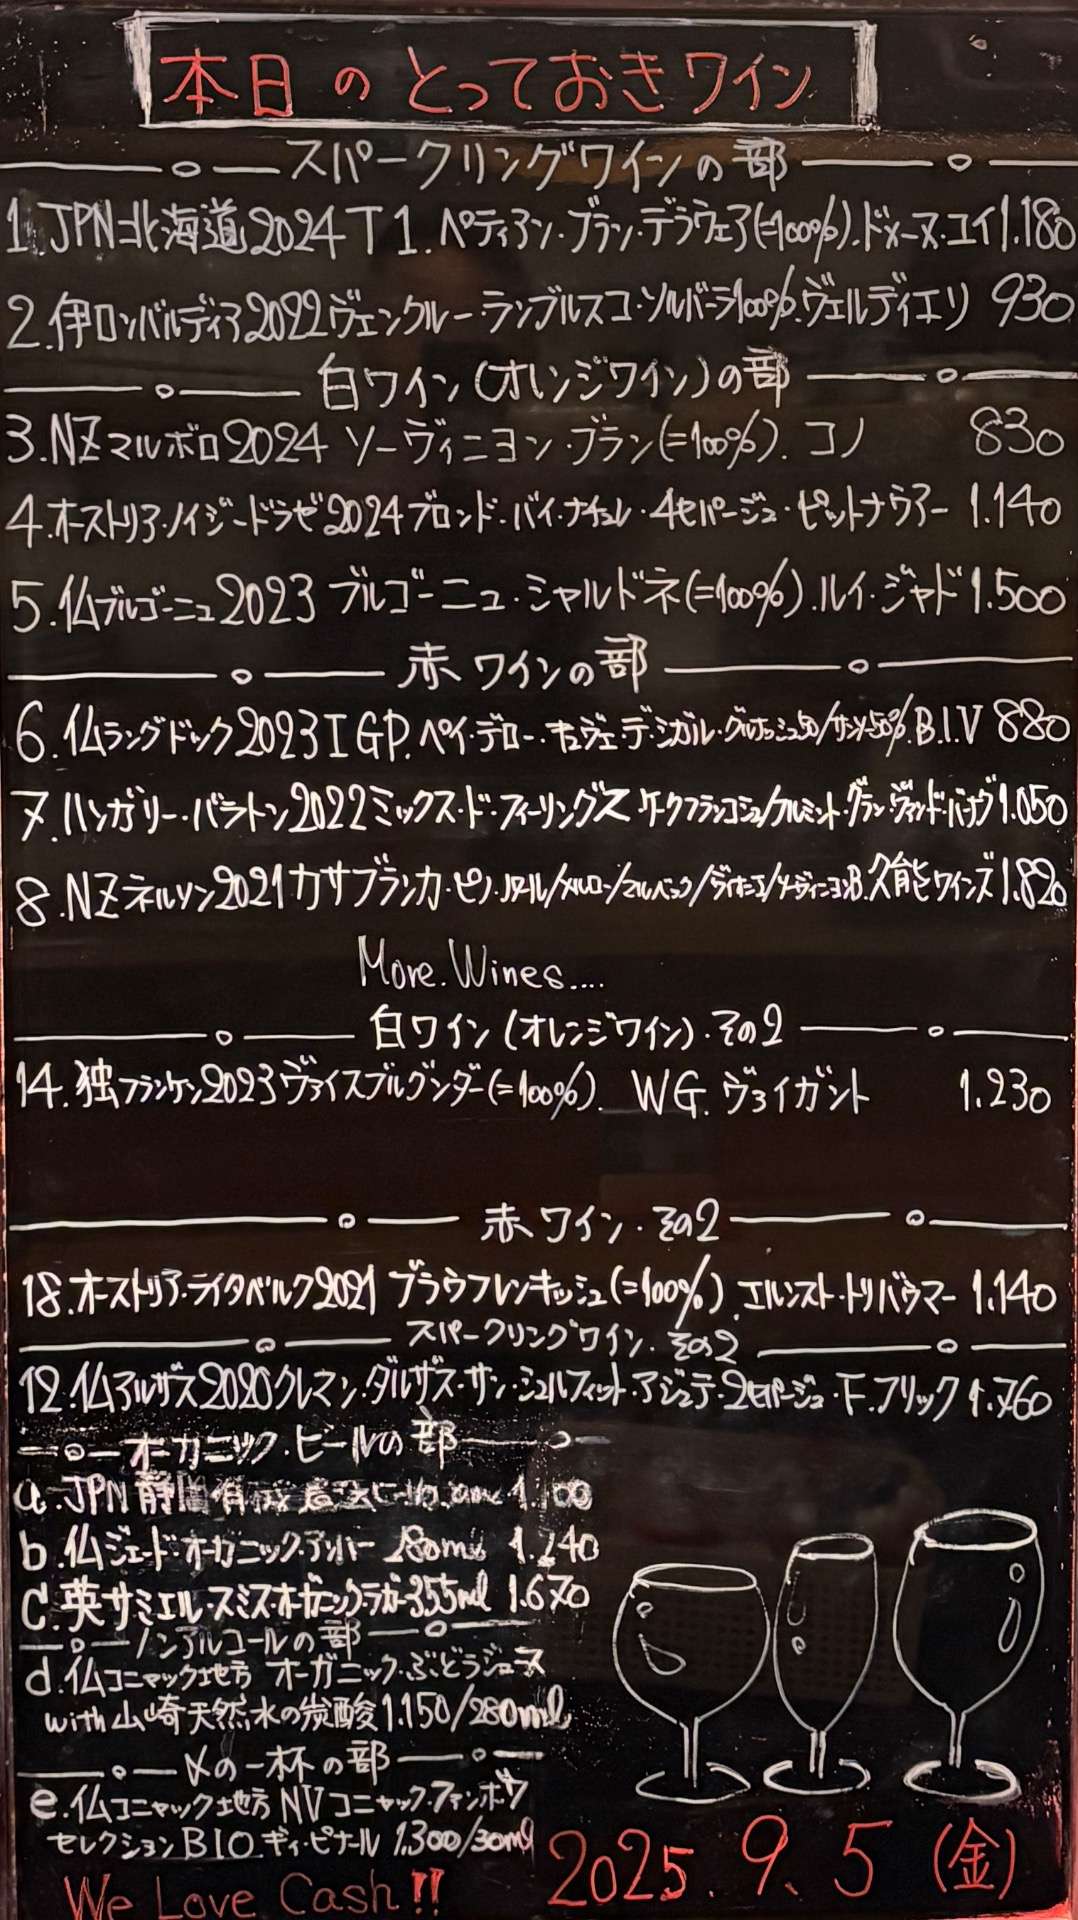 本日のとっておきワイン
スパークリングワインの部
1. JPN北海道2024 T 1. ペティアン・ブラン・デラウェア(=100%).ドメーヌ・コイ 1.180
2.伊ロンバルディア2022ヴェンクルー・ランブルスコ・ソルバーラ100%.ヴェルディエリ 930
白ワイン(オレンジワイン)の部
3.NZマルボロ2024 ソーヴィニヨン・ブラン(=100%). コノ 830
4.オーストリア・ノイジードラゼ2024ブロンド・バイ・ナチュレ・4セパージュ・ピットナウアー 1.140
5.仏ブルゴーニュ2023 ブルゴーニュ・シャルドネ(=100%).ルイ・ジャド 1.500
赤ワインの部
6.仏ラングドック2023 IGP.ペイ・デロー・キュヴェ・デ・シガル・グルナッシュ50/サンソー50%.B.I.V 880
7.ハンガリー・バラトン2022ミックス・ド・フィーリングス ケークフランコシュ/クルミント・グラン・ヴァン・ド・バナヴ 1.050
8.NZネルソン2021カサブランカ・ピノ・ノワール/メルロー/マルベック/ヴィオニエ/ソーヴィニヨンB.久能ワインズ 1.820
More.Wines....
白ワイン(オレンジワイン)・その2
14.独フランケン2023ヴァイスブルグンダー(=100%). WG.ヴァイガント 1.230
赤ワイン・その2
18.オーストリア・ライタベルク2021 ブラウフレンキッシュ(=100%).エルンスト・トリバウマー 1.140
スパークリングワイン・その2
12.仏アルザス2020クレマン・ダルザス・サン・シュルフィット・アジュテ・2セパージュ・F.フリック 1.760
オーガニック・ビールの部
a.JPN 静岡有 1.100
b.仏ジェード・オーガニック・アンバー 280ml 1.240
c.英サミエル・スミス・オーガニック・ラガー355ml 1.670
ノンアルコールの部
d.仏コニャック地方 オーガニック・ぶどうジュース
with山崎天然水の炭酸 1.150/280ml
〆の一杯の部
e.仏コニャック地方NVコニャック・ファンボワ
セレクションBIO ギィ・ピナール 1.300/30ml
We Love Cash!!
2025.9.5(金)